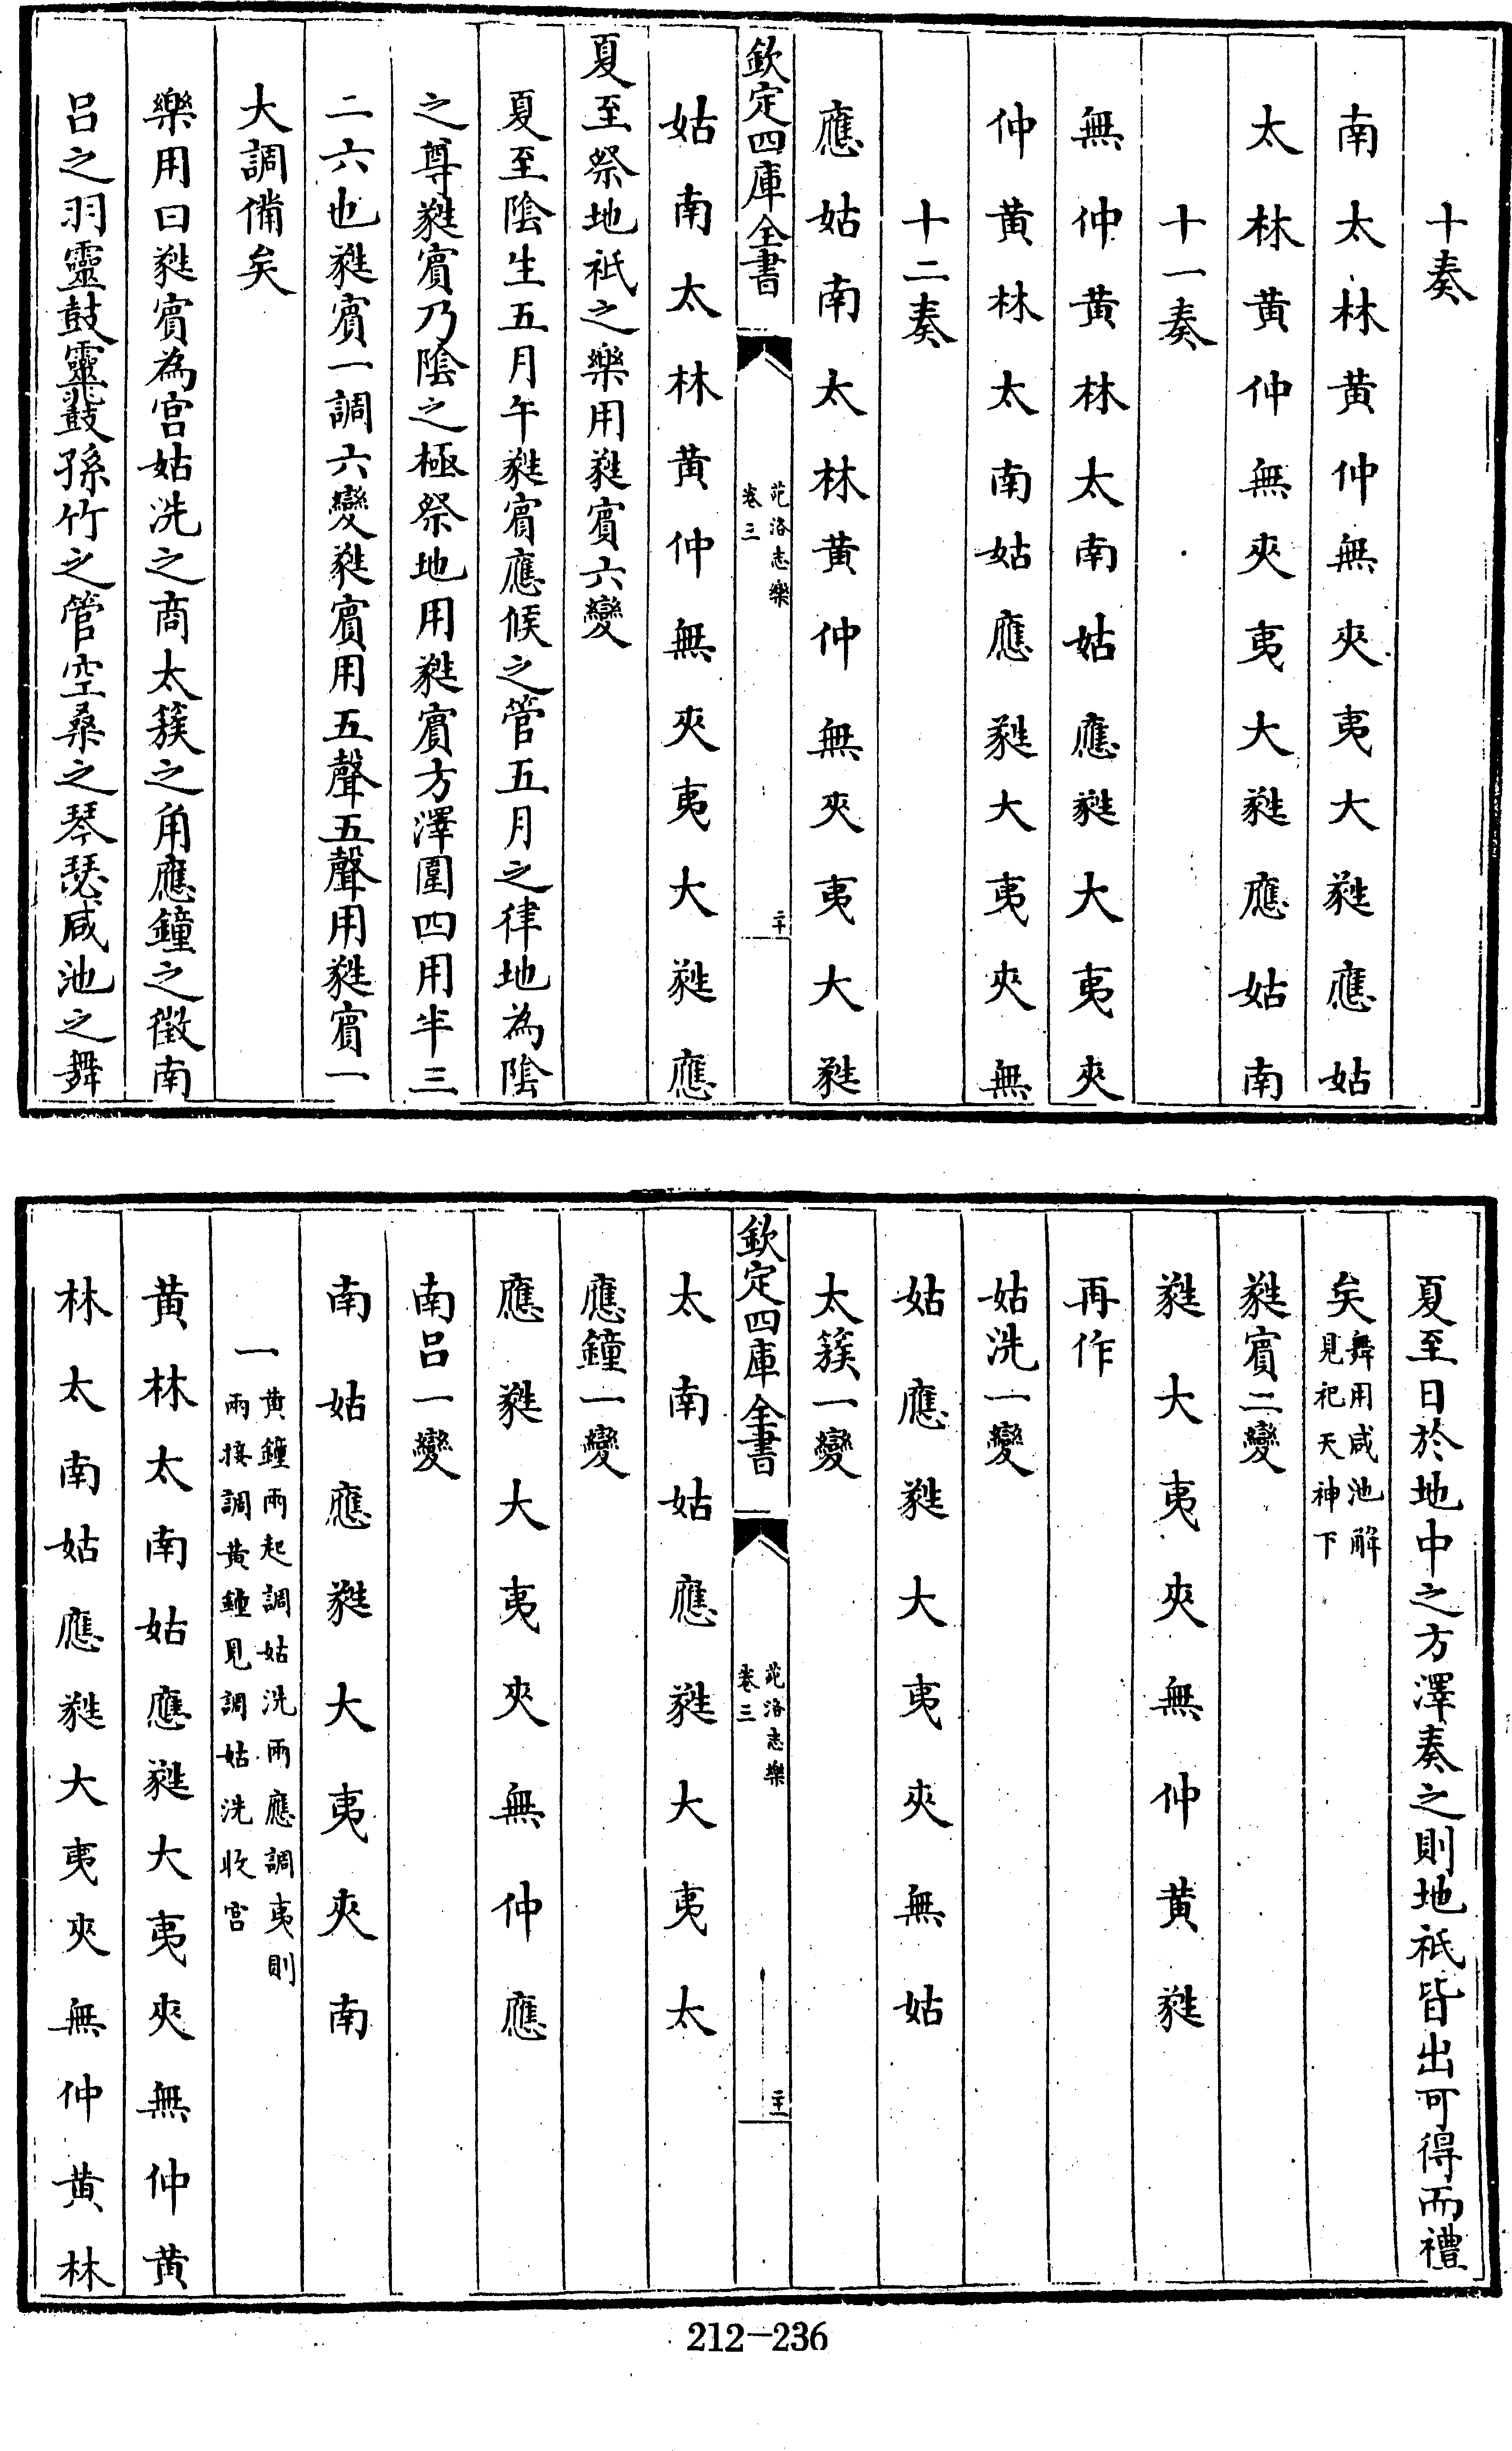 十奏
南太林黄仲無夾夷大蕤應姑
太林黄仲無夾夷大蕤應姑南
十一奏
無仲黄林太南姑應蕤大夷夾
仲黄林太南姑應蕤大夷夾無
十二奏
應姑南太林黄仲無夾夷大蕤
欽定四庫全書
苑洛志樂
卷三
二十
姑南太林黄仲無夾夷大蕤應
夏至祭地祇之樂用蕤賔六變
夏至隂生五月午蕤賔應候之管五月之律地為隂
之尊蕤賔乃隂之極祭地用蕤賔方澤圍四用半三
二六也蕤賔一調六變蕤賔用五聲五聲用蕤賔一
大調備矣
樂用曰蕤賔為宮姑洗之商太簇之角應鐘之徵南
吕之羽靈鼓靈鼗孫竹之管空桑之琴瑟咸池之舞
夏至日於地中之方澤奏之則地祇皆出可得而禮
矣舞用咸池解
見祀天神下
蕤賔二變
蕤大夷夾無仲黄蕤
再作
姑洗一變
姑應蕤大夷夾無姑
太簇一變
欽定四庫全書
苑洛志樂
卷三
二十一
太南姑應蕤大夷太
應鐘一變
應蕤大夷夾無仲應
南吕一變
南姑應蕤大夷夾南
一黄鐘兩起調姑洗兩應調夷則
兩接調黄鐘見調姑洗收宮
黄林太南姑應蕤大夷夾無仲黄
林太南姑應蕤大夷夾無仲黄林
212-236